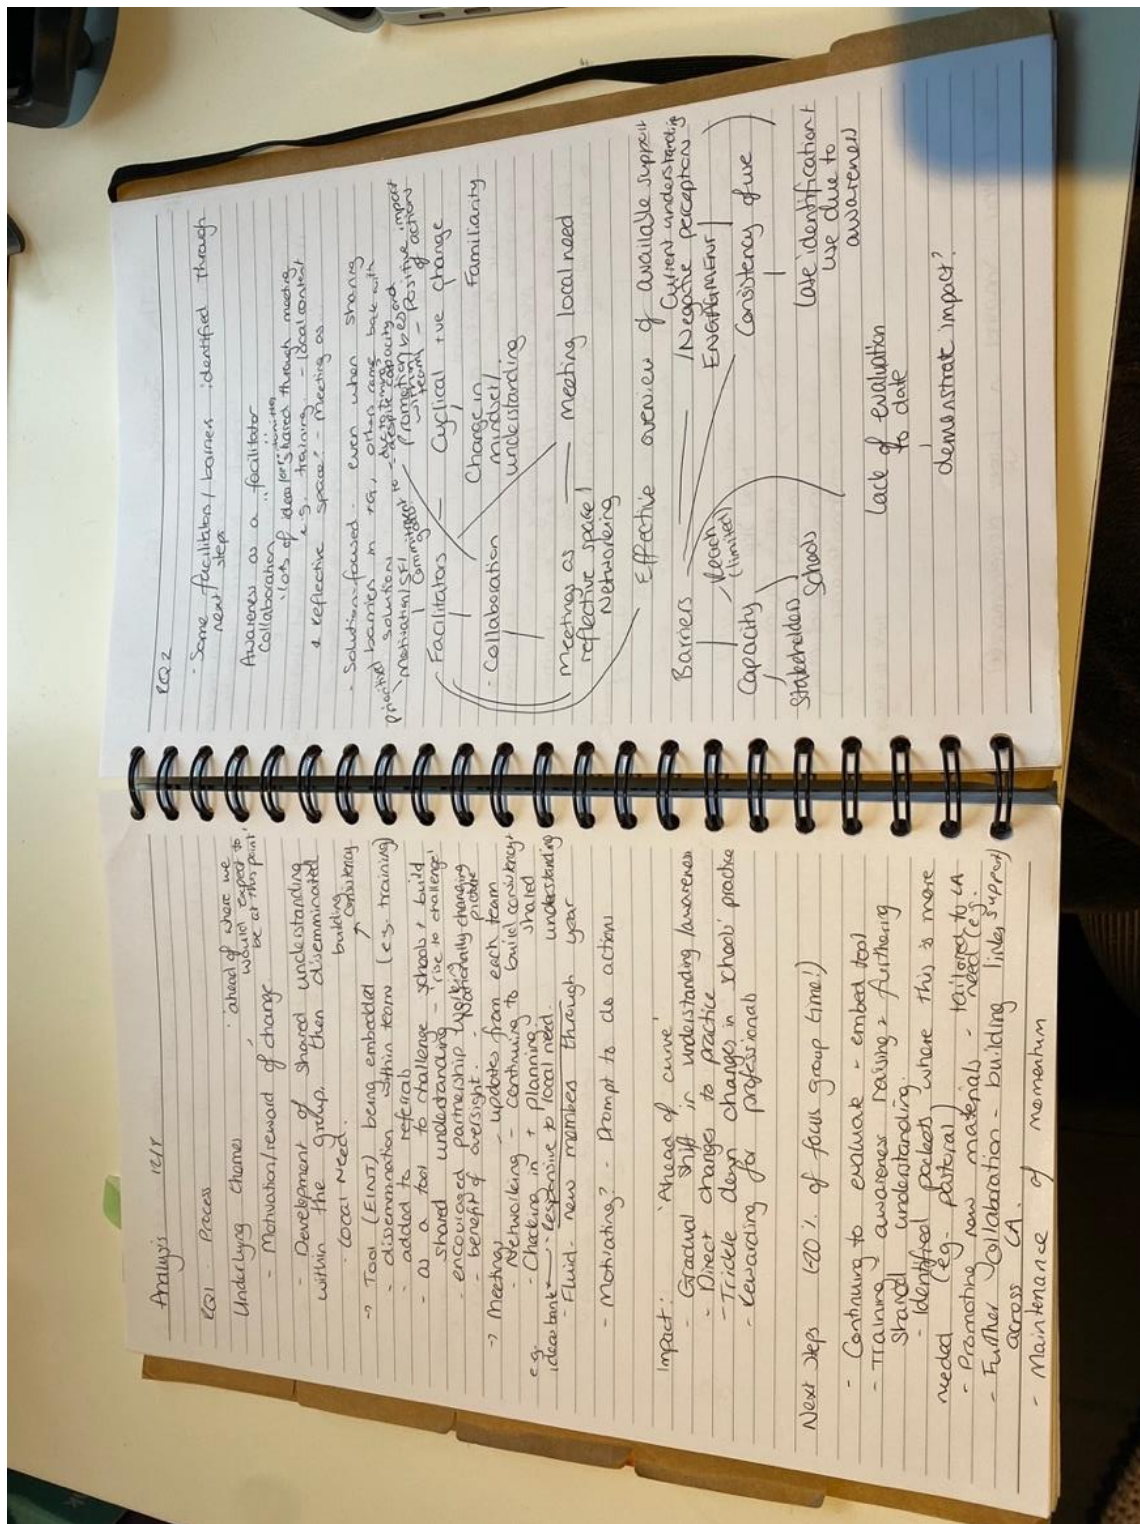 Analysis 12/8
RQ1. Process
Underlying themes - 'ahead of where we
would expect to
be at this point'
- Motivation/reward of change.
- Development of shared understanding
within the group, then disemminated
· local need. building
consistency
→ Tool (EINT) being embedded
- dissemination within team (e.g. training)
- added to referrals
- as a tool to challenge schools & build
shared understanding - 'rise to challenge'
- encouraged partnership working
- benefit of oversight. - Nationally changing
picture
→ Meetings - updates from each team
- Networking - continuing to build consistency &
- Checking in + planning shared
e.g. understanding
idea bank - Responsive to local need.
- Fluid - new members through year
- Motivating? - Prompt to do action
Impact: 'Ahead of curve'
- Gradual shift in understanding/awareness
- Direct changes to practice
- Trickle down changes in schools' practice
- Rewarding for professionals
Next steps (20% of focus group time!)
- Continuing to evaluate - embed tool
- Training, awareness raising & furthering
shared understanding.
- Identified pockets where this is more
needed (e.g. pastoral)
- Promoting new materials - tailored to LA
need (e.g.
- Further collaboration - building links support)
across LA.
- Maintenance of momentum
RQ2
- Some facilitators/barriers identified through
next steps
Awareness as a facilitator
Collaboration
'lots of ideas shared through meeting
e.g. training. - local context
& reflective space? - Meeting as
- Solution-focused - even when sharing
barriers in RQ, others came back with
solutions
despite capacity
Promotion beyond
within team - Positive impact
of action
Facilitators - Cyclical +ve change
- Collaboration Change in Familiarity
mindset/
understanding
Meetings as meeting local need
reflective space/
Networking
Effective overview of available support
Current understanding
Barriers /Negative perception
Reach ENGAGMENT
(limited)
Capacity Consistency of use
Stakeholders Schools
Late identification &
use due to
awareness
Lack of evaluation
to date
demonstrate impact?